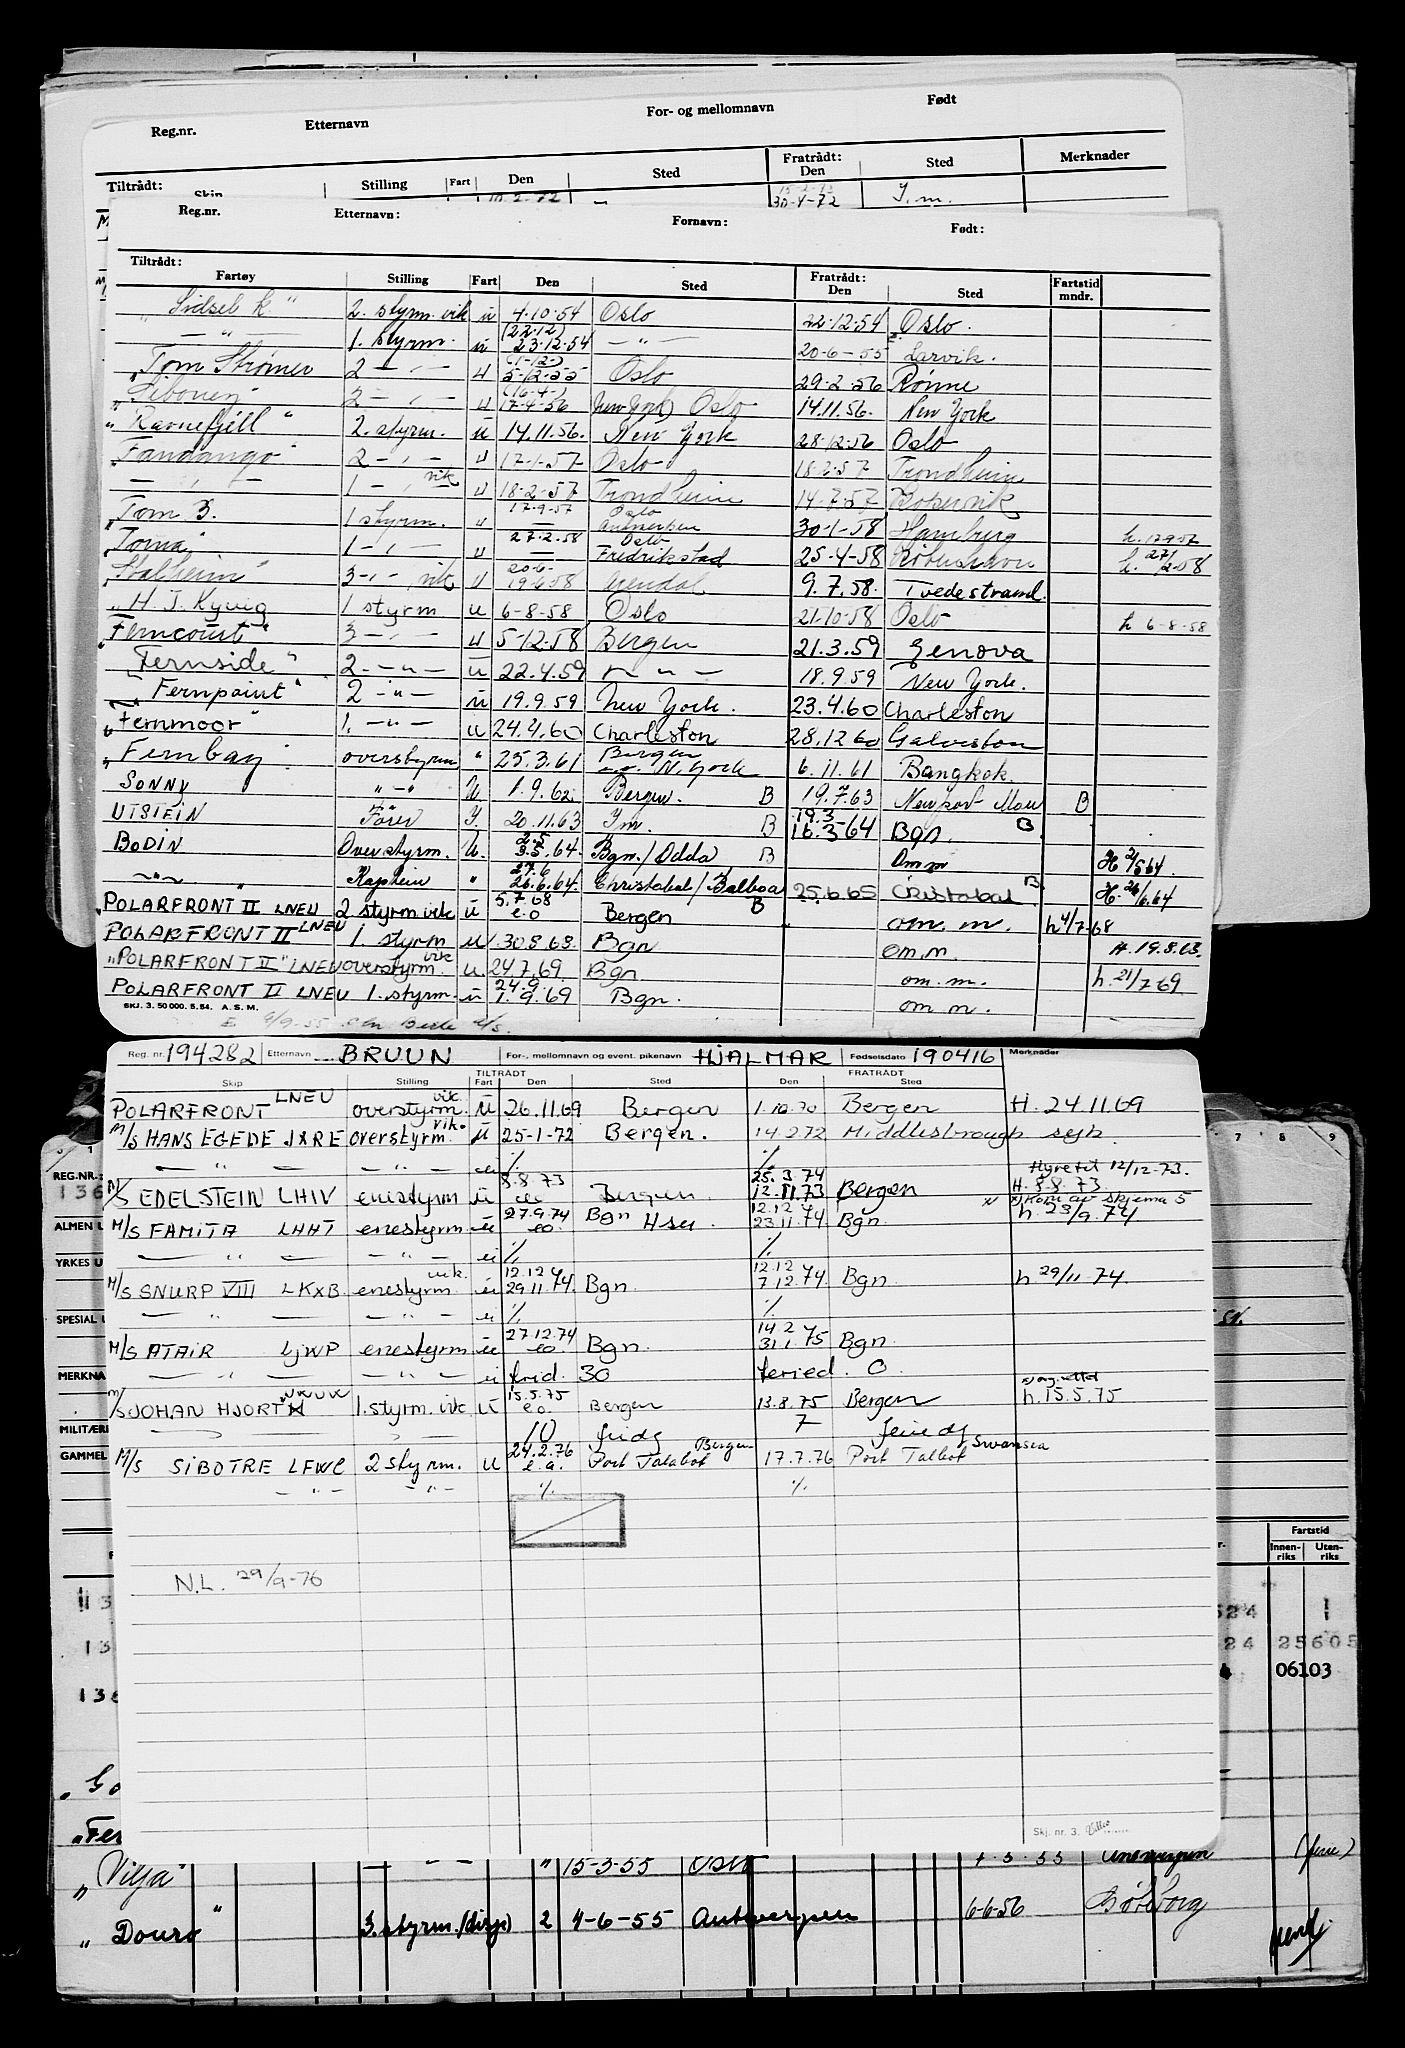 Reg.nr. Etternavn For- og mellomnavn Født
Tiltrådt: Stilling Fart Den Sted Fratrådt: Den Sted Merknader
30-4-72 I.m.
Reg.nr. Etternavn: Fornavn: Født:
Tiltrådt: Fratrådt:
Fartøy Stilling Fart Den Sted Den Sted Fartstid mndr.
"Sidsel K." 2. styrm. vik u 4.10.54 Oslo 22.12.54 Oslo.
— " — 1. styrm. u (22.12) 23.12.54 — " — 20-6-55 Larvik.
"Tom Strømer 2 — " — u (1-12-) 5-12-55 Oslo 29-2-56 Rønne
"Siboney 2 — " — u (16-4-) 17-4-56 (New York) Oslo 14.11.56. New York
"Ravnefjell" 2. styrm. u 14.11.56. New York 28-12-56 Oslo
"Fandango" 2 — " — u 17-1-57 Oslo 18-2-57 Trondheim
— " — 1 — " — vik u 18-2-57 Trondheim 14-7-57
"Tom B. 1 styrm. u 17-9-57 — Oslo Antwerpen 30-1-58 Hamburg h. 17-9-57
"Toma" 1 — " — u 27-2-58 — Oslo Fredrikstad 25-4-58 København h. 27/2-58
"Stalheim" 3 — " — vik u 20-6- 19-6-58 Arendal 9.7.58. Tvedestrand.
"H. J. Kyvig 1 styrm u 6-8-58 Oslo 21-10-58 Oslo h 6-8-58
"Ferncourt" 3 — " — u 5-12-58 Bergen 21.3.59 Genova
"Fernside" 2. — " — u 22.4.59 — " — 18.9.59 New York.
"Fernpoint" 2 — " — u 19.9.59 New York. 23.4.60 Charleston
"Fernmoor" 1. — " — u 24.4.60 Charleston 28.12 60 Galveston
"Fernbay" overstyrm " 25.3.61 Bergen N. York 6.11.61 Bangkok.
SONNY " — " U. 1.9.62. Bergen. B 19.7.63 Newport Mon B
UTSTEIN Fører I. 20.11.63 I m. B 19.3 16.3-64 Bgn. B
BODIN Overstyrm. U. 2.5 3.5.64. Bgn./Odda B Om m H 2/5 64
— " — Kaptein " 27.6 26.6.64. Christobal/Balboa B 25.6.65 Cristobal B H. 26/6.64
POLARFRONT II LNEU 2 styrm vik u 5.7.68 e.o Bergen om. m. h 4/7-68
POLARFRONT II LNEU 1. styrm u 30.8.68. Bgn om.m. H. 19.8.68.
"POLARFRONT II" LNEU overstyrm. vik u. 24.7.69 Bgn om. m. h. 21/7 69
POLARFRONT II LNEU 1. styrm. u 24.9. 1.9.69 Bgn. om m.
SKJ. 3. 50 000. 5.54. A.S.M.
Reg. nr. 194282 Etternavn BRUUN For-, mellomnavn og event. pikenavn HJALMAR Fødselsdato 190416 Merknader
TILTRÅDT FRATRÅDT
Skip Stilling Fart Den Sted Den Sted
POLARFRONT LNEU overstyrm. vik. u 26.11.69 Bergen 1.10.70 Bergen H. 24.11.69
M/S HANS EGEDE JXRE overstyrm. vik. u 25-1-72 Bergen. 14.2.72 Middlesbrough syk.
— " — — " — u ·/. ·/. Hyre til 12/12-73.
M/S EDELSTEIN LHIV enestyrm u 8.8.73 eo Bergen 25.3.74 12.11.73 Bergen x H. 8.8.73. x) Kom av skjema 5
M/S FAMITA LHHT enestyrm. u 27.9.74 eo. Bgn 12.12.74 23.11.74 Bgn. h. 23/9.74
— " — — " — u ·/. ·/.
M/S SNURP VIII LKXB. enestyrm. vik. u 12.12.74 29.11.74. Bgn. 12.12.74 7.12.74 Bgn. h 29/11-74.
— " — — " — u ·/. ·/.
M/S ATAIR LJWP enestyrm u 27.12.74 eo Bgn. 14.2 31.1.75 Bgn.
— " — — " — u frid 30 feried. 0.
M/S JOHAN HJORT 1. styrm. vik u 15.5.75 e.o. Bergen 13.8.75 Bergen h. 15.5.75
10 frida 7
M/S SIBOTRE LFWC 2 styrm. u 24.2.76 e.a. Bergen Port Talabot 17.7.76 Swansea Port Talbot
— " — — " — ·/. ·/.
N.L. 29/9-76
Skj. nr. 3.
7 8 9
REG.NR.:
136
ALMEN U
YRKES U
SPECIAL U
MERKNA
MILITÆRI
GAMMEL
Fartstid
Innen-riks Uten-riks
524 1
24 25605
06103
13
13
136
"Fer
"Vilja" — " — " 15-3-55 Oslo Antwerpen (ferie)
"Douro" 3. styrm. (disp) 2 4-6-55 Antwerpen 6-6-56 Gøteborg